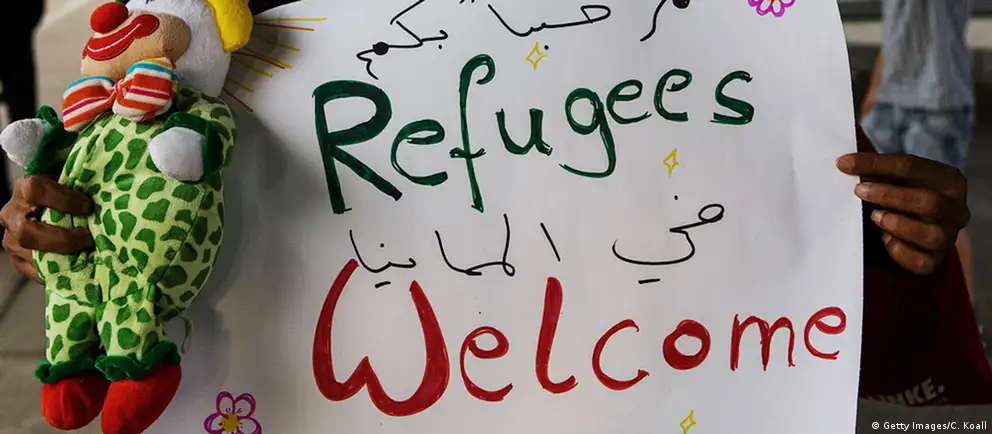 مرحبا بكم
Refugees
في المانيا
Welcome
NKE.
© Getty Images/C. Koall